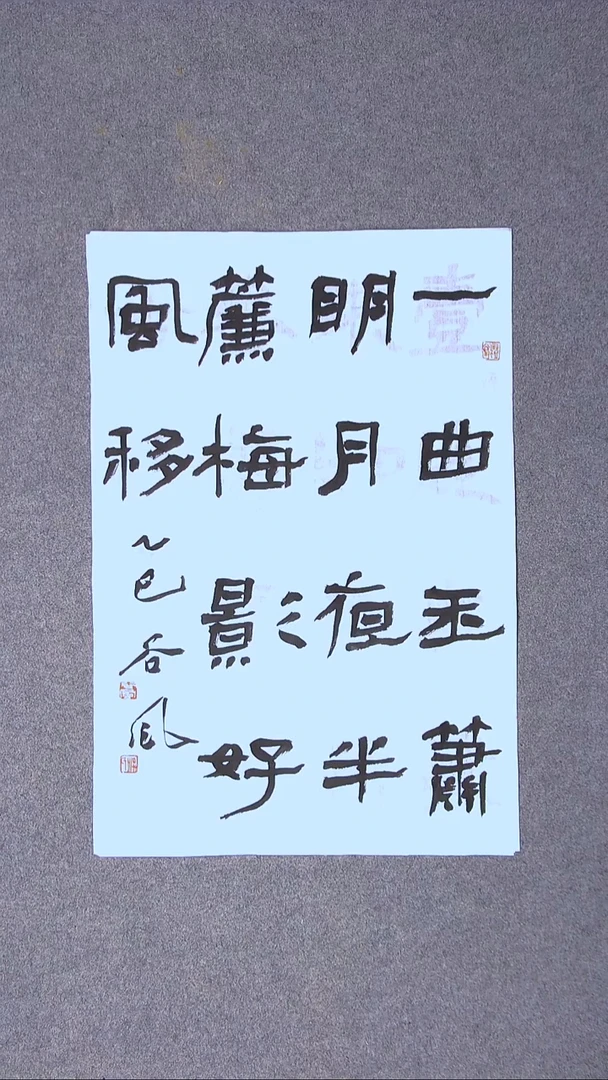 一曲玉簫
明月夜半
簾梅影好
風移
乙巳谷风